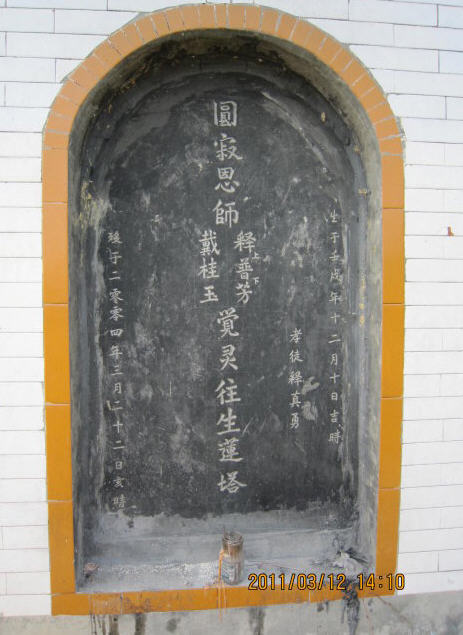 生于壬戌年十二月十日吉時
孝徒釋真勇
圓寂恩師
释上普下芳
戴桂玉
覺灵往生蓮塔
殁于二零零四年三月二十二日亥時
2011/03/12 14:10